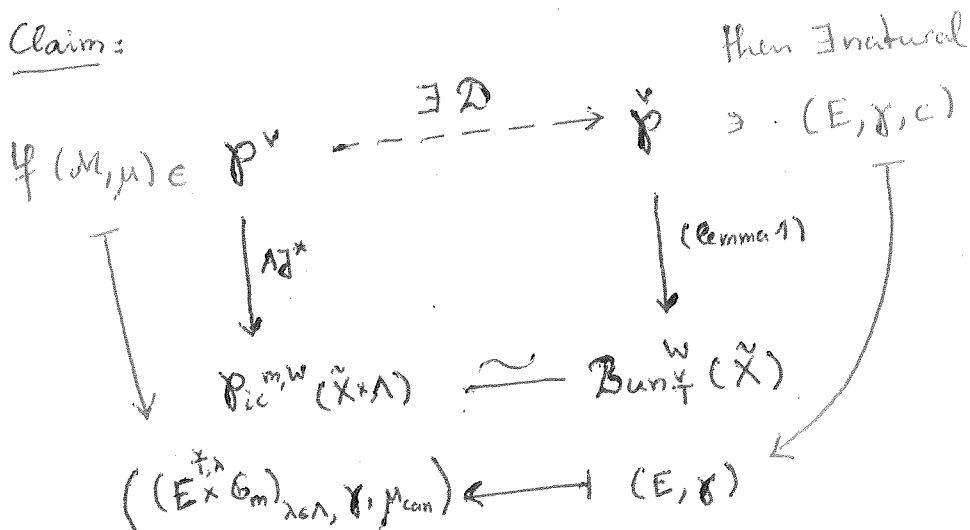 Claim:
then ∃ natural
∃ 𝒟
∀ (M,μ) ∈ 𝒫^∨ ⇢ 𝒫̌ ∋ (E,γ,c)
AJ* (Lemma 1)
Pic^{m,W}(X̃×Λ) ≃ Bun_Ť^W(X̃)
((E ×^{Ť,λ} G_m)_{λ∈Λ}, γ, μ_can) ↤ (E,γ)